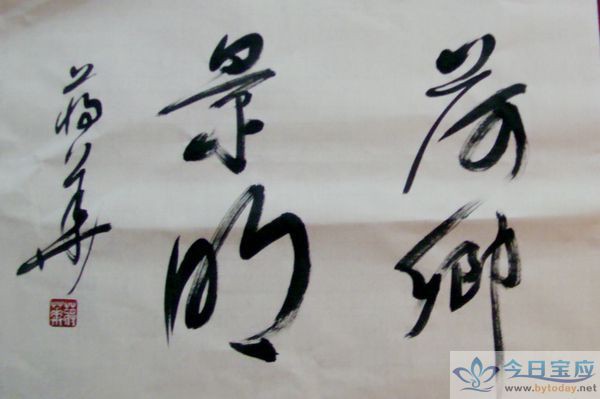 荷鄉
景明
蒋华
今日宝应
www.bytoday.net